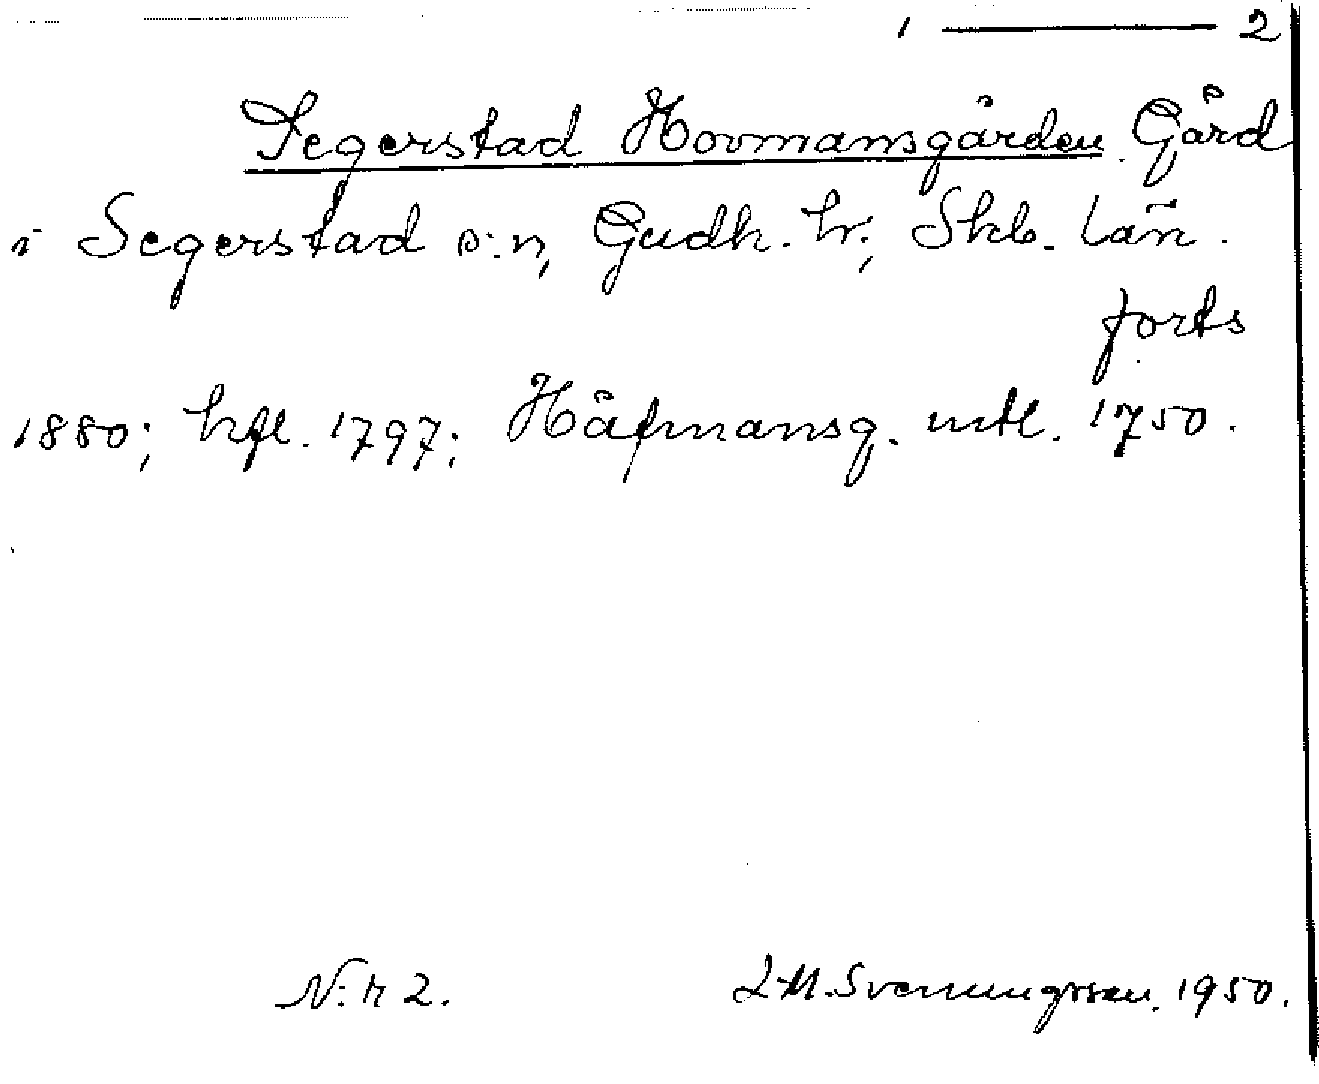 1 — 2
Segerstad Hovmansgården Gård
i Segerstad s:n, Gudh. hr., Skb. län.
forts
1880; hfl. 1797; Håfmansg. mtl. 1750.
N:r 2. L.M. Svenungsson. 1950.